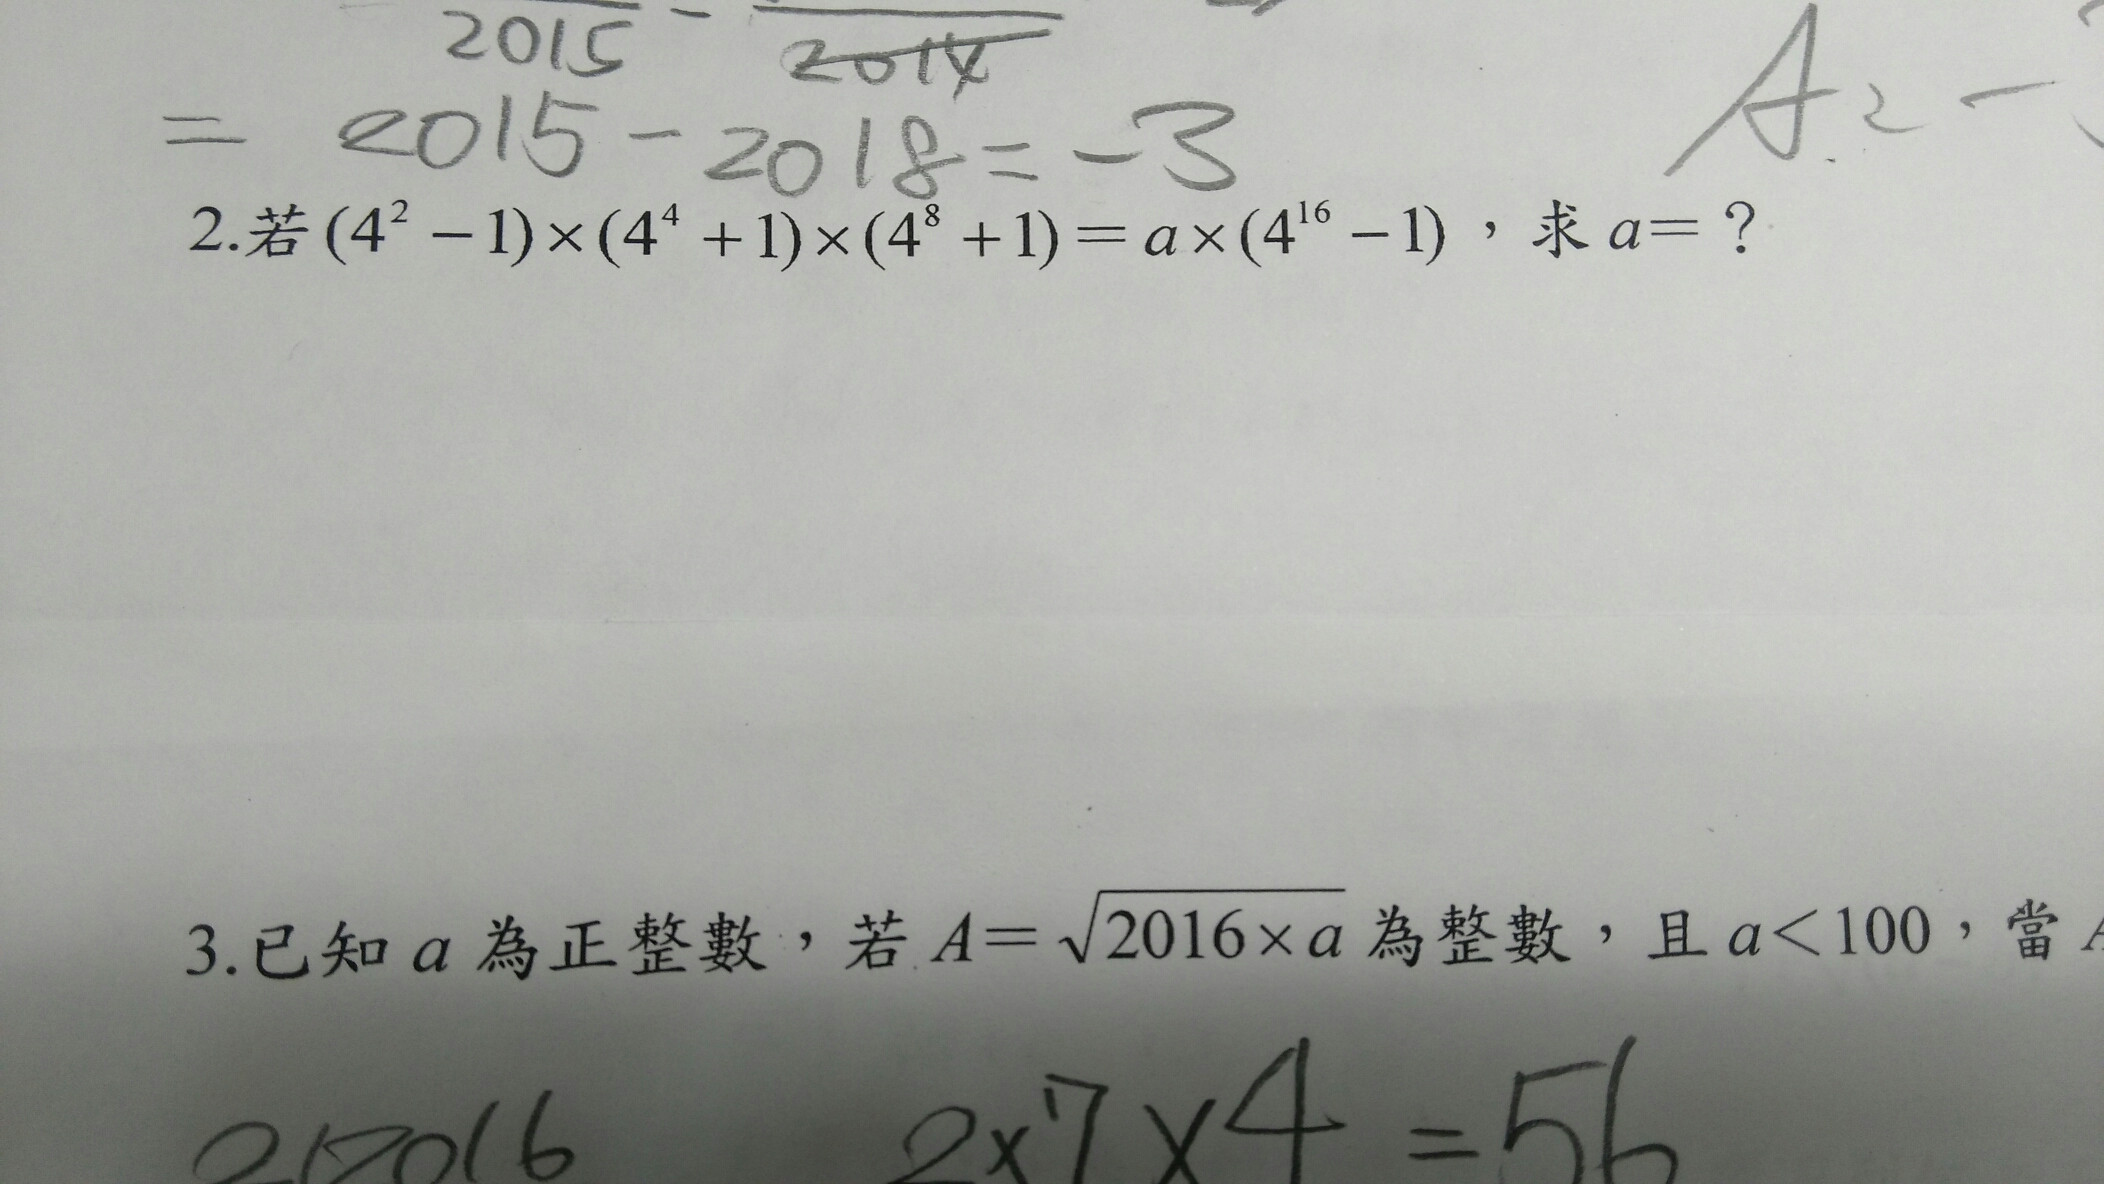 2015 - 2014
= 2015 - 2018 = -3
2.若(4² －1)×(4⁴ ＋1)×(4⁸ ＋1)＝a×(4¹⁶ －1)，求 a＝？
3.已知 a 為正整數，若 A＝√2016×a 為整數，且 a＜100，當
2 2016 2×7×4 =56